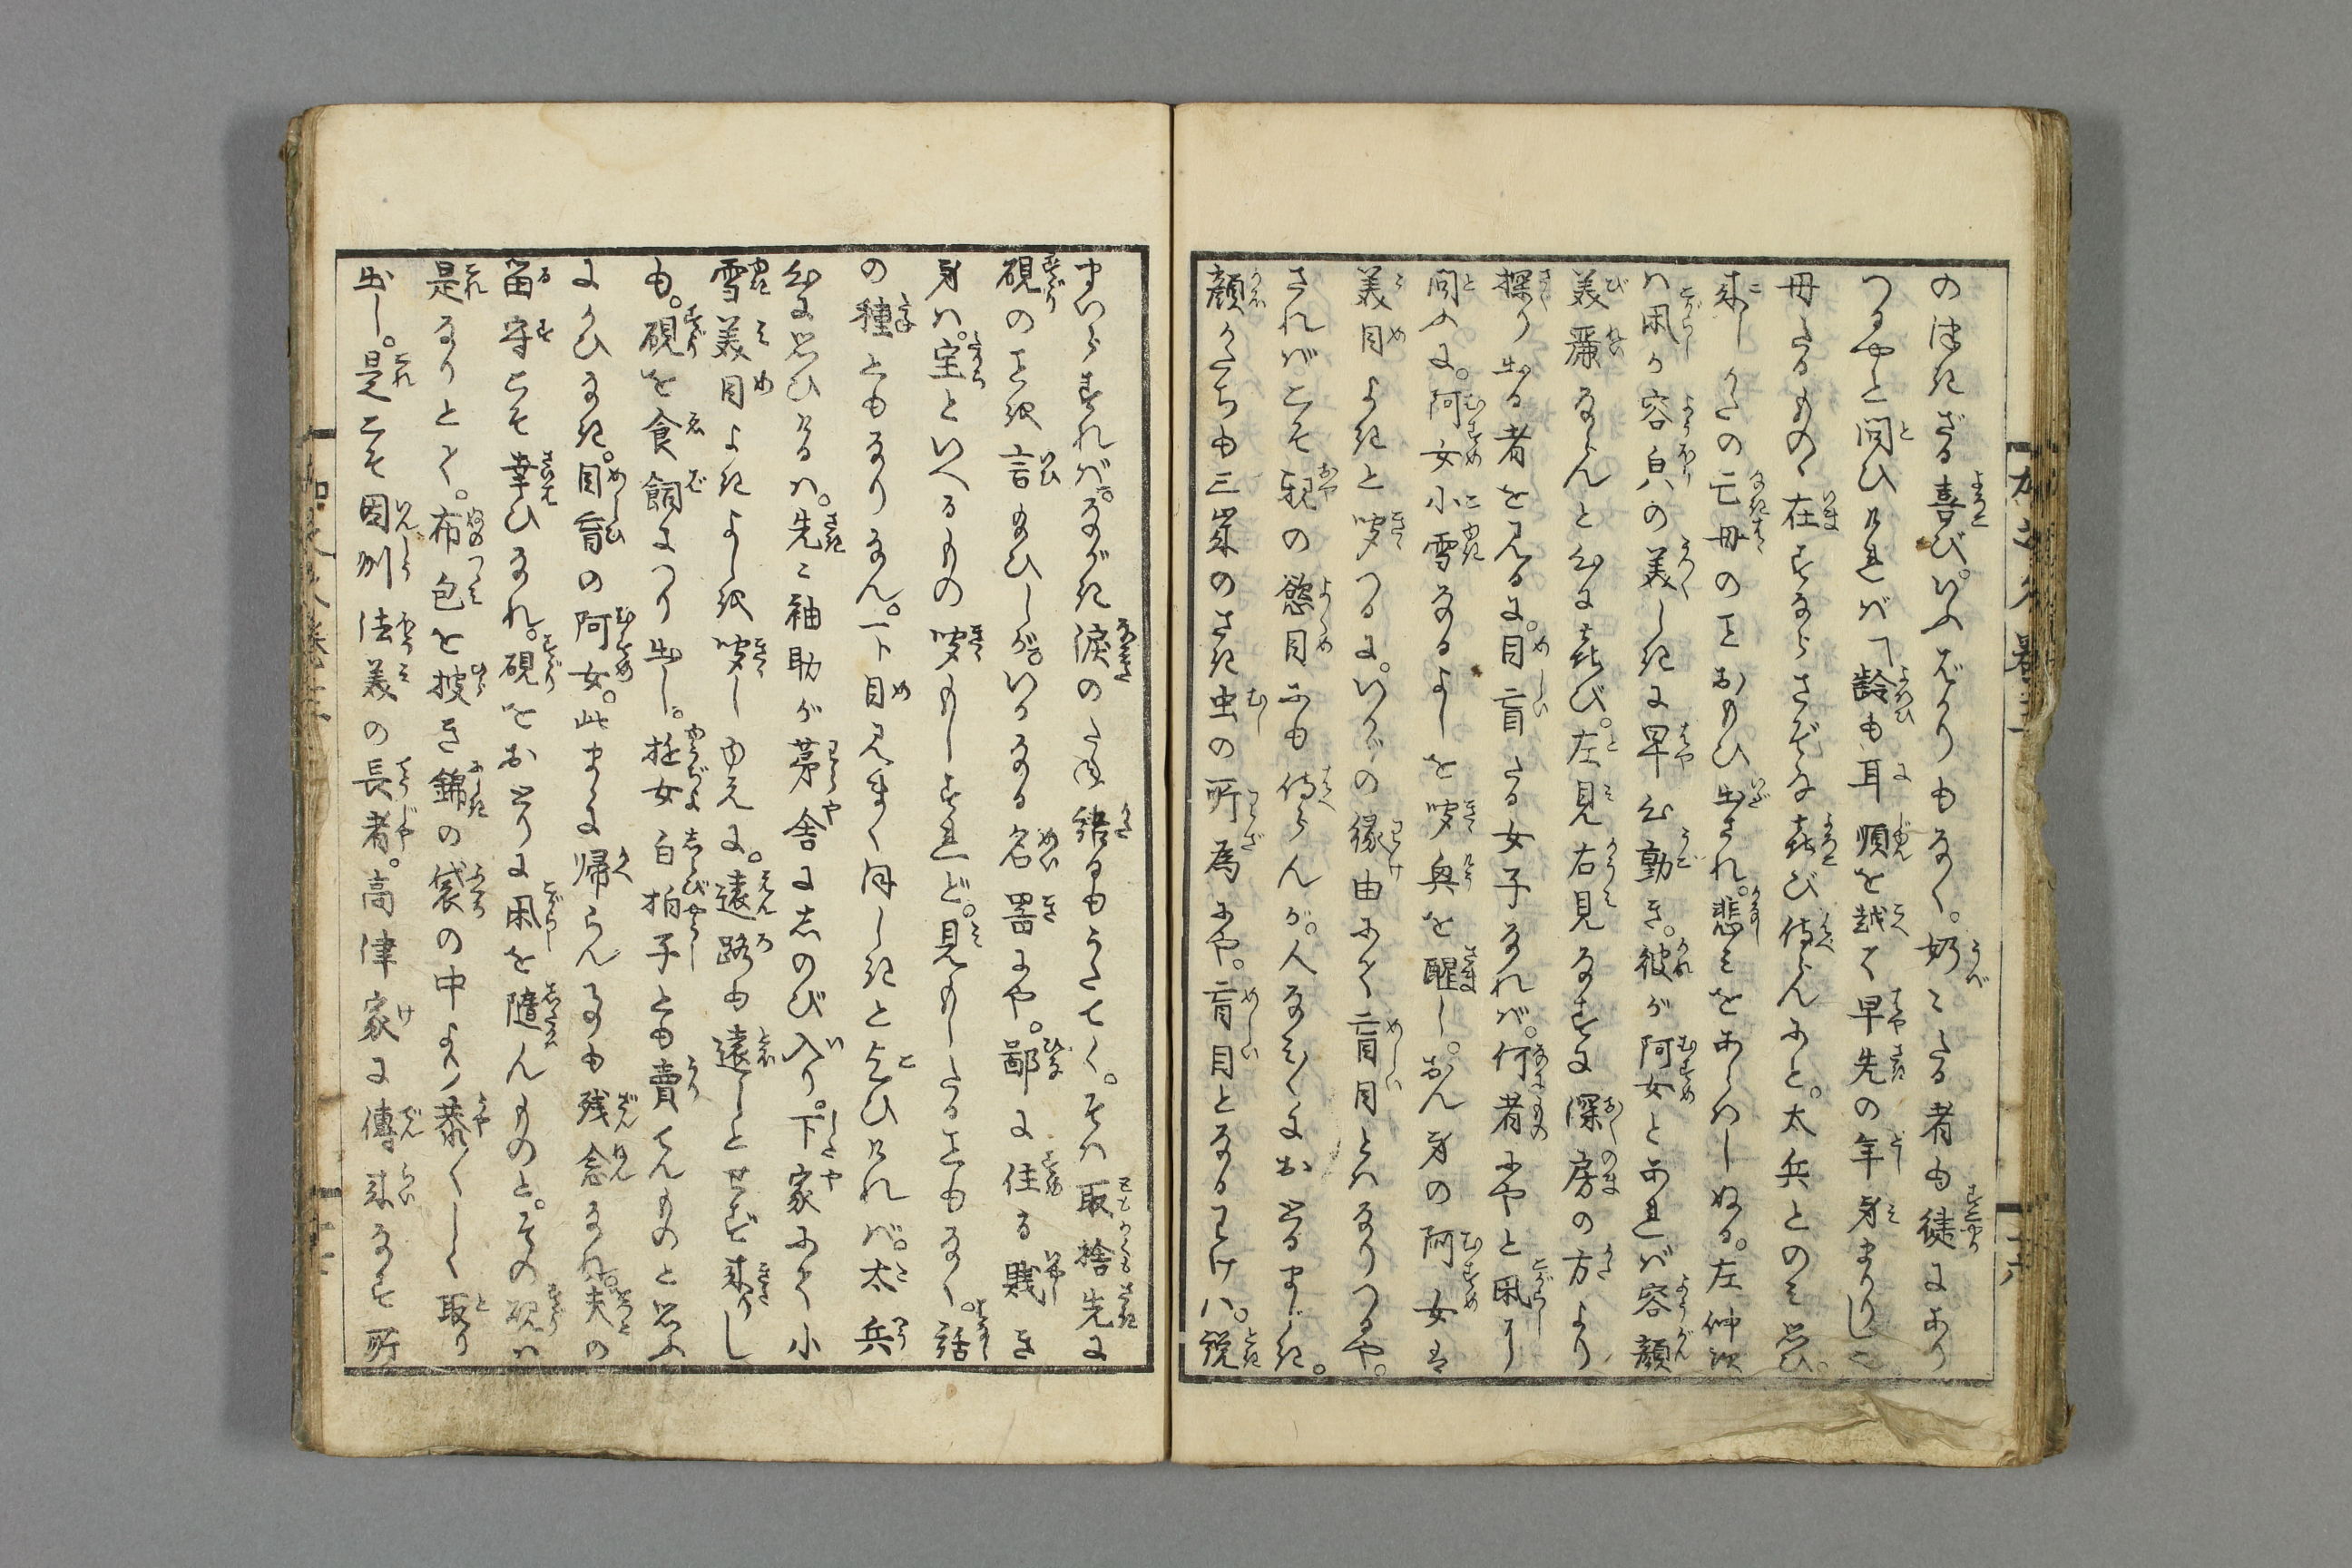 の津きざる喜び。いふばかりもなく。奶こたる者も徒にあり
つるやと問ひければ「齢も耳順を越て早先の年身まかりしと
母たるものゝ在すならさぞな喜び侍らんにと。太兵とのミ思ひ
来しかたの亡母のことおもひ出され。悲ミをあらハしぬる。左仲次
ハ凩が容白の美しきに早心動き。彼が阿女とあれバ容顔
美麗ならんと心に喜び。左見右見なすに深房の方より
探り出る者を見るに。目盲たる女子なれバ。何者にやと凩に
問ふに。阿女小雪なるよしを咬興を醒し。おん身の阿女は
美目よきと咬つるに。いかゞの縁由にて盲目とハなりつるや。
されバこそ親の慾目にも侍らんが。人なミ〳〵におとるまじき。
顔かたちも三歳のとき虫の所為にや。盲目となるわけハ。説
まいらすれバ。ながき涙のたね繰るもうたてく。そハ取捨先に
硯のこと言給ひしが。いかなる名器にや。鄙に住る賎き
身ハ。宝といへるもの咬もしすれど。見もしたることもなく。話
の種ともなりなん。一下目見まくほしきと乞ひければ。太兵
心に思ひけるハ。先に袖助が茅舎にしのび入り。下家にて小
雪美目よきよし咬しゆえに。遠路も遠しとせず来りし
も。硯を食飼につり出し。妊女白拍子とも賣てんものと思ふ
にかひなき。目盲の阿女。此まゝに帰らんるも残念なれ。夫の
留守こそ幸ひなれ。硯をおとりに凩を隨んものと。その硯ハ
是なりとて。布包を披き錦の袋の中より恭〳〵しく取り
出し。是こそ因州法美の長者。高津家に傳来なす所